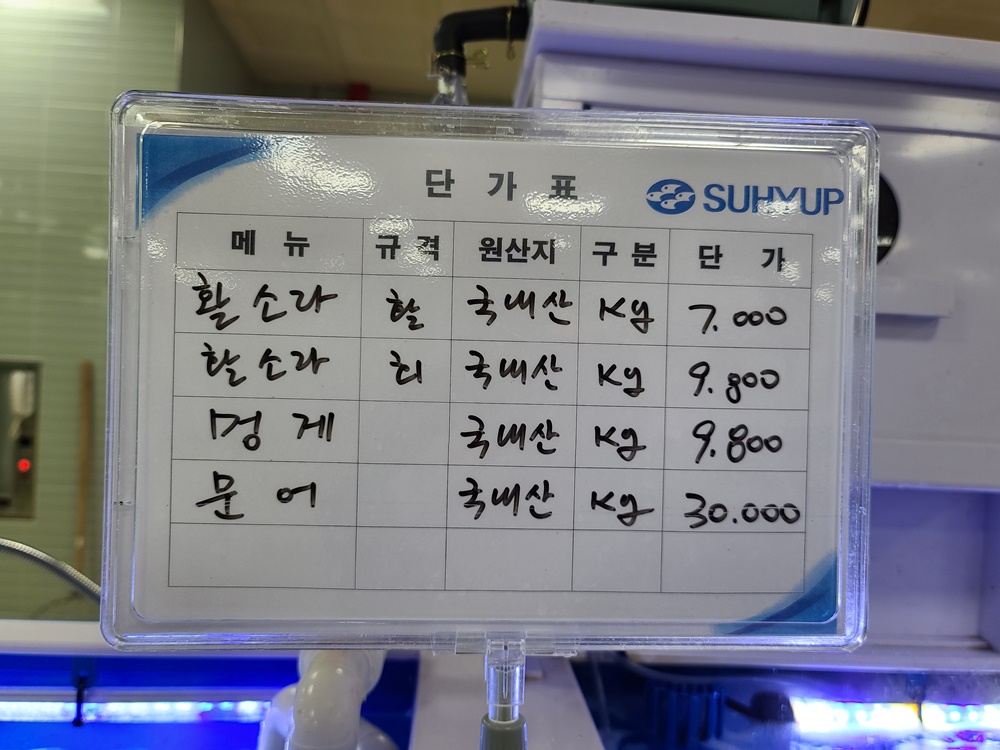 단 가 표
SUHYUP
메 뉴 규 격 원산지 구 분 단 가
활 소라 활 국내산 Kg 7.000
활 소라 회 국내산 Kg 9.800
멍 게 국내산 Kg 9.800
문 어 국내산 Kg 30.000